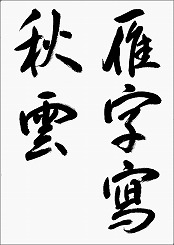 雁字寫
秋雲